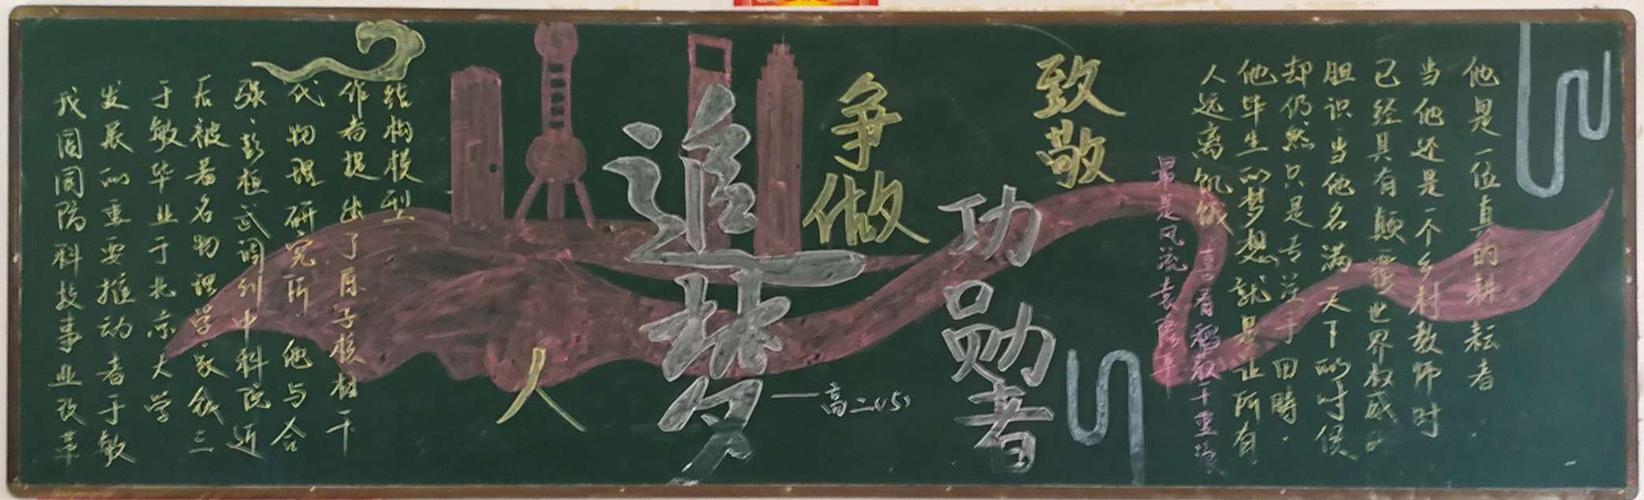 他是一位真的耕耘者.
当他还是一个乡村教师时
已经具有颠覆世界权威的
胆识·当他名满天下的时候
却仍然只是专注于田畴.
他毕生的梦想就是让所有
人远离饥饿
喜看稻菽千重浪
最是风流袁隆平
致敬
功勋者
争做
追梦
人
——高二(5)
我国国防科技事业改革
发展的重要推动者于敏
于敏毕业于北京大学
后被著名物理学家钱三
强、彭桓武调到中科院近
代物理研究所 他与合
作者提出了原子核相干
结构模型